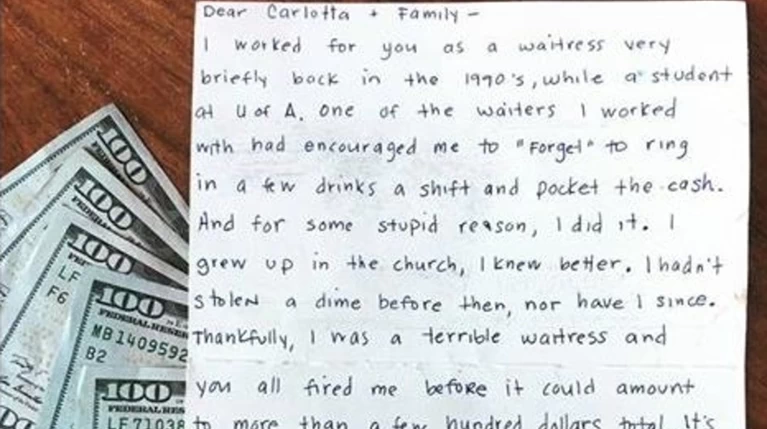 Dear Carlotta + Family -
I worked for you as a waitress very
briefly back in the 1990's, while a student
at U of A. One of the waiters I worked
with had encouraged me to "Forget" to ring
in a few drinks a shift and pocket the cash.
And for some stupid reason, I did it. I
grew up in the church, I knew better. I hadn't
stolen a dime before then, nor have I since.
Thankfully, I was a terrible waitress and
you all fired me before it could amount
to more than a few hundred dollars total. It's
100
100
FEDERAL
100
FEDERAL
LF
F6
100
FEDERAL RESERVE
MB1409592
B2
100
FEDERAL RES
LF71038